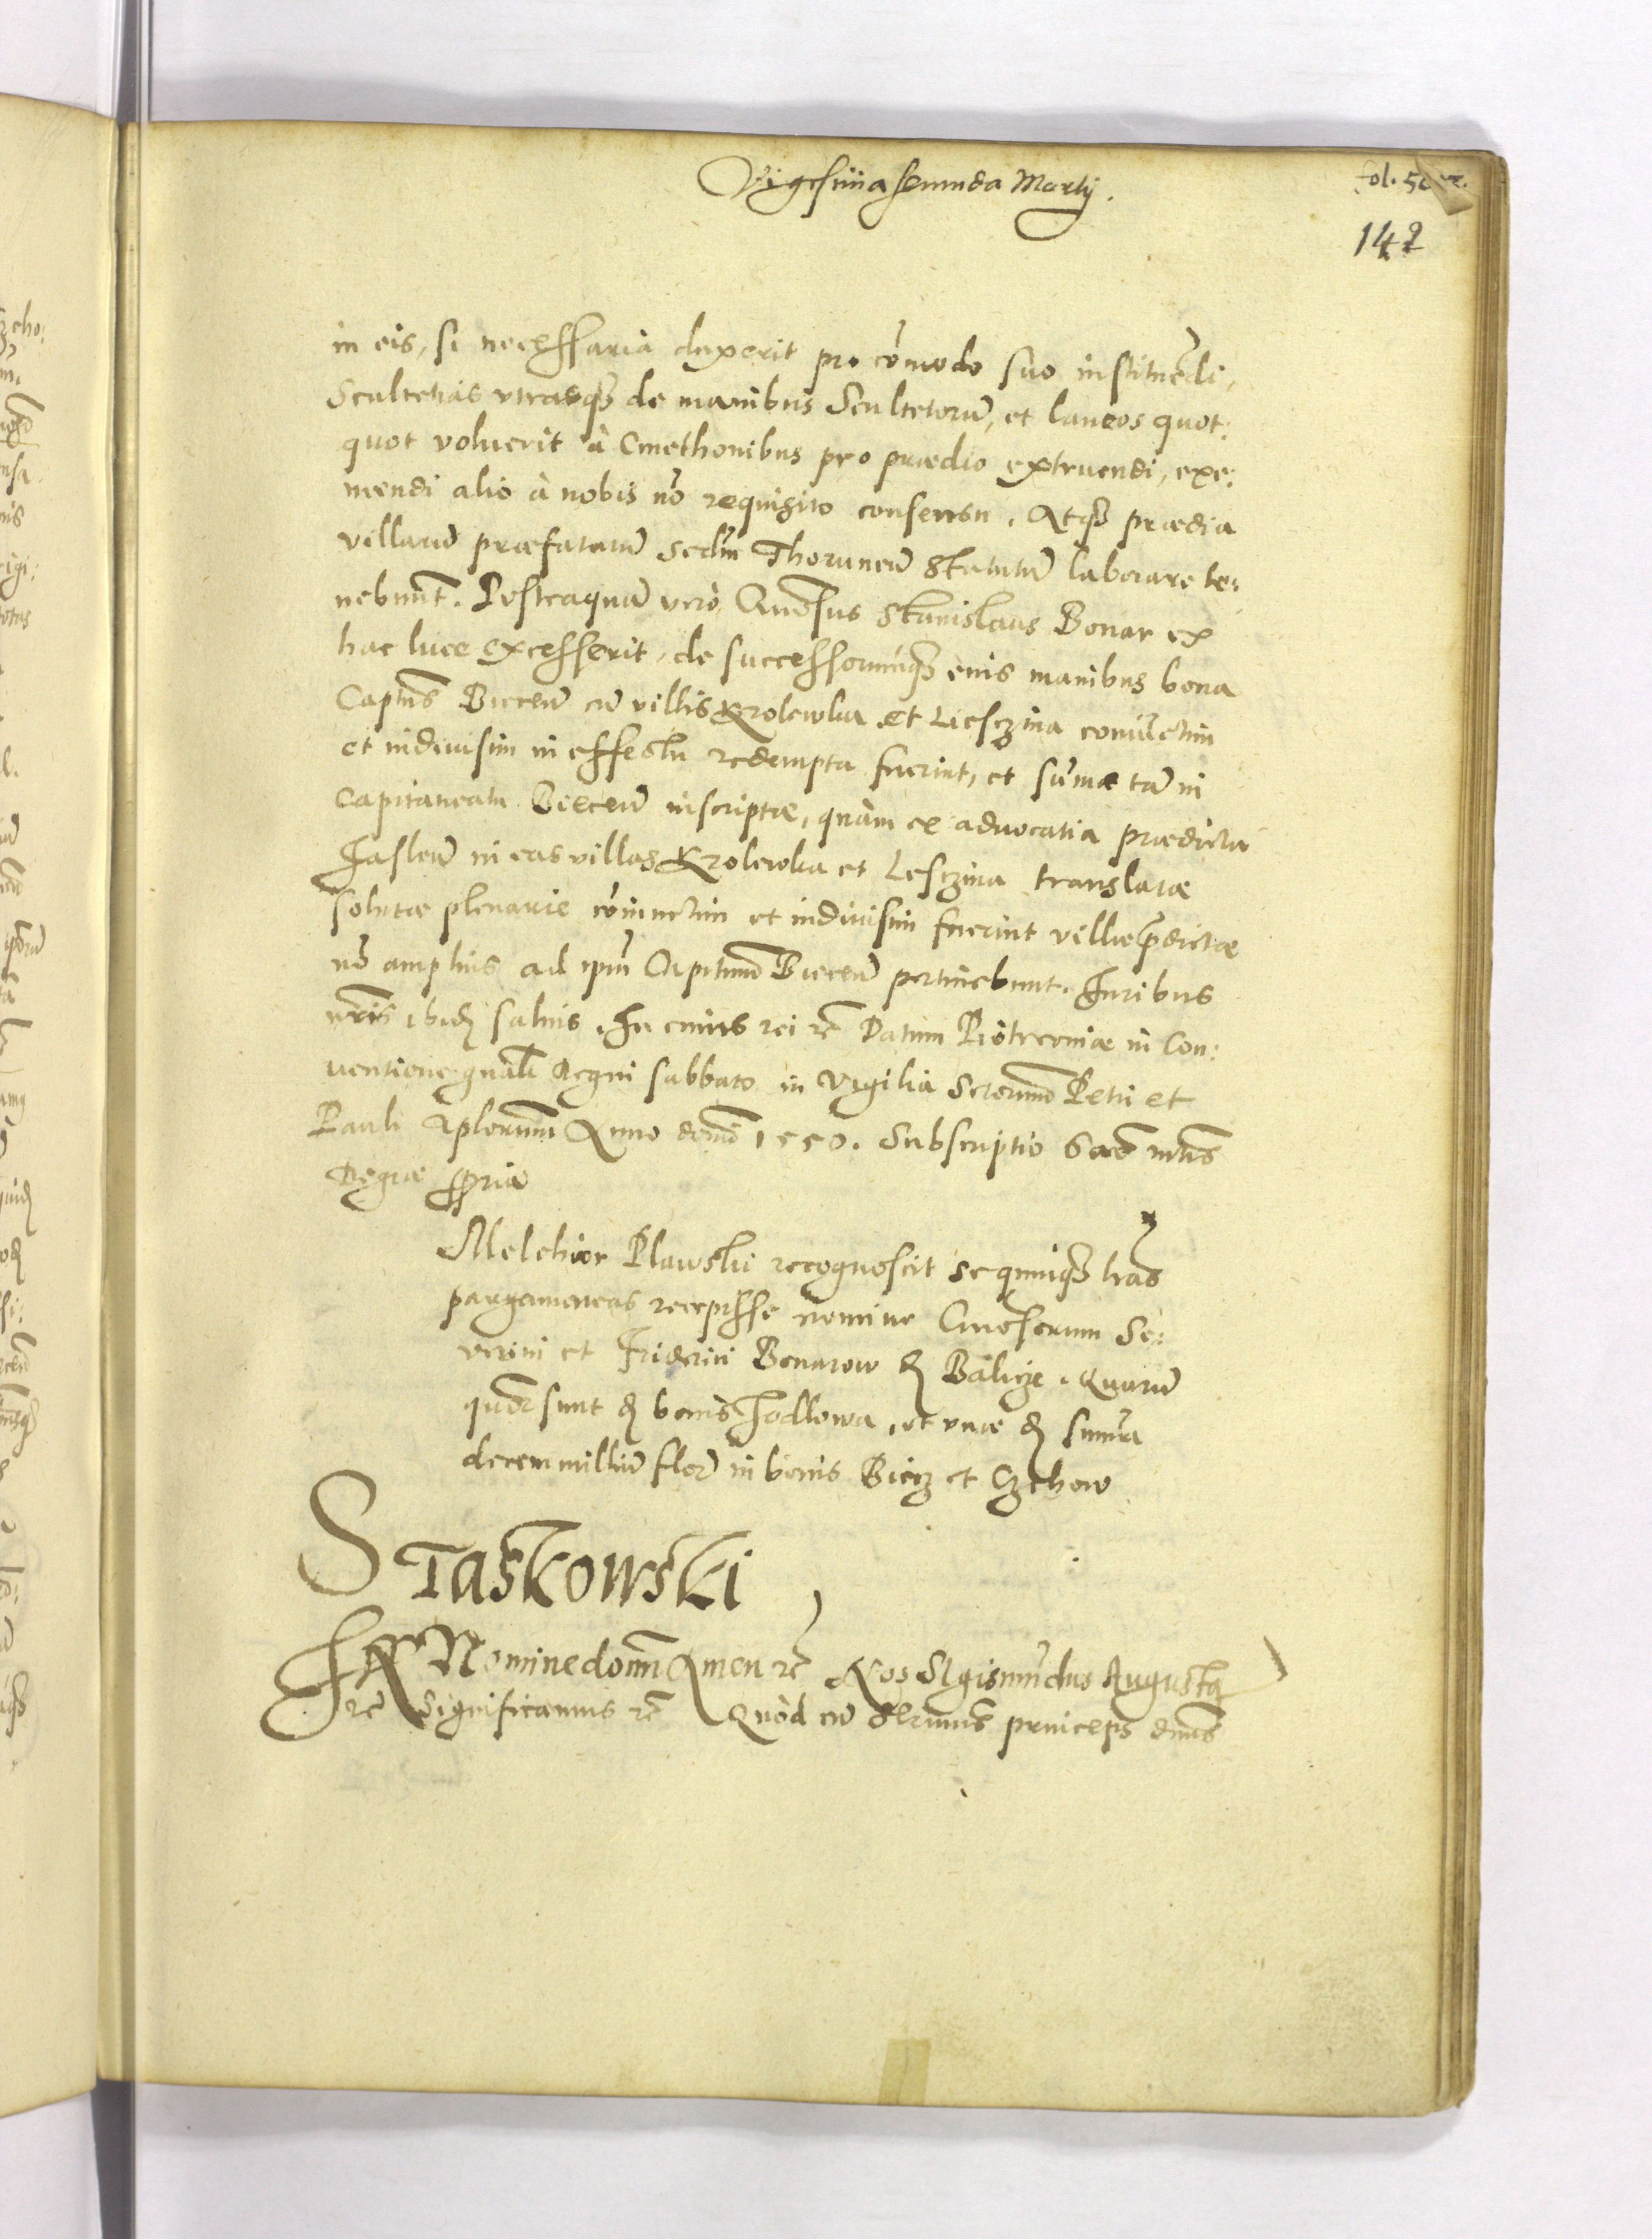 Vigesima secunda Martij.
fol. 50
142
in eis, si necessaria duxerit pro cōmodo suo instituēdi,
Scultetias utrasq₃ de manibus Scultetorū, et laneos quot:
quot voluerit à Cmethonibus pro prædio extruendi, exe:
mendi alio à nobis nō requisito consensu. Atq₃ prædia
villarū præfatarū secdm Thorunen̄ Statutū laborare te:
nebunt. Posteaquā vero Gnōsus Stanislaus Bonar ex
hac luce excesserit, de successorumq₃ eius manibus bona
Captus Biecen̄ cū villis Krolewka et Liesczina coniūctim
et indiuisim in effectu redempta fuerint, et sūmæ tā in
Capitaneatu Biecen̄ inscriptæ, quàm ex aduocatia prædicta
Jaslen̄ in eas villas Krolewka et Lesczina translatæ
solutæ plenarie cōiunctim et indiuisim fuerint villæ p̄dictæ
nō amplius ad ipm̄ Capitm̄ Biecen̄ pertinebunt. Juribus
nr̄is ibid₃ saluis. In cuius rei rc̄ Datum Piotrcouiæ in Con:
uentione gnāli Regni sabbato in Vigilia Sctorum Petri et
Pauli Aplorum̄ Anno domī 1550. Subscriptio Sacræ mtis
Regiæ ppria
Melchior Plawski recognoscit se quinq₃ lrās
pargameneas recepisse nomine Gnosorum Se:
verini et Friderici Bonarow d₃ Balicze. Quarū
quōr sunt d₃ bonis Jodlowa, et vnæ d₃ summa
decem milliū flor̄ in bonis Biecz et Czchow
Staskowski
In Nomine domī Amen rc̄ Nos Sigismūdus Augusta
rc̄ Significamus rc̄ Quòd cū Serm̄us princeps dnūs